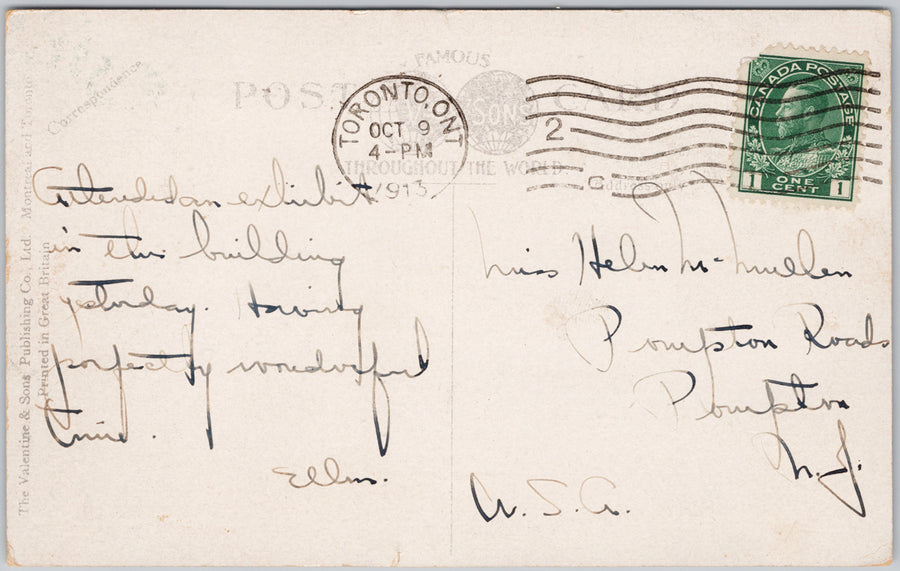 Correspondence
FAMOUS
POST CARD
SONS
THROUGHOUT THE WORLD.
TORONTO, ONT
OCT 9
4-PM
1913
2
CANADA POSTAGE
1 ONE CENT 1
Attended an exhibit
in this building
yesterday. Having
perfectly wonderful
time.
Ellen.
Miss Helen McMullen
Pompton Roads
Pompton
N.J.
U.S.A.
The Valentine & Sons Publishing Co. Ltd. Montreal and Toronto
Printed in Great Britain